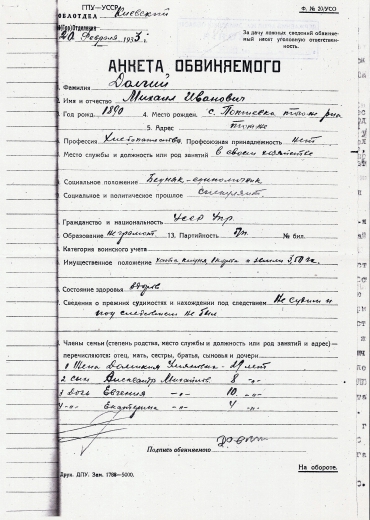 ГПУ—УССР
Ф. № 20/УСО
ОБЛОТДЕЛ Киевской
20 Февраля 1933 г.
За дачу ложных сведений обвиняемый несет уголовную ответственность.
АНКЕТА ОБВИНЯЕМОГО
Фамилия Долгий
Имя и отчество Михаил Иванович
Год рожд. 1890 4. Место рожден. с.
5. Адрес
Профессия Хлебопашество Профсоюзная принадлежность нет
Место службы и должность или род занятий в своем хозяйстве
Социальное положение Бедняк-единоличник
Социальное и политическое прошлое
Гражданство и национальность УССР Укр.
Образование неграмот. 13. Партийность б/п. № бил.
Категория воинского учета
Имущественное положение хата и земли 3,50 га
Состояние здоровья здоров
Сведения о прежних судимостях и нахождении под следствием Не судим и
под следствием не был
Члены семьи (степень родства, место службы и должность или род занятий и адрес)—
перечисляются: отец, мать, сестры, братья, сыновья и дочери
1 Жена 29 лет
2 сын 8 -"-
3 дочь Евгения -"- 10 -"-
4 -"- Екатерина -"- 4 -"-
Подпись обвиняемого
На обороте.
Друк. ДПУ. Зам. 1788—5000.